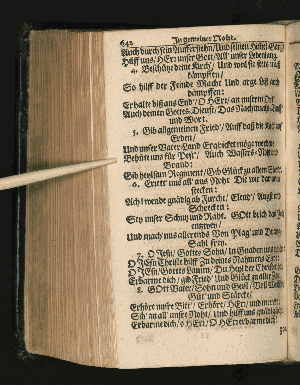 642 In gemeiner Noht.
Auch durch sein Aufferstehn/ Und seinen Himel-Gang/
Hilff uns/ HErr unser Gott/ All' unser Lebenlang.
4. Beschütze deine Kirch/ Und was sie stets
kämpffen/
So hilff der Feinde Macht Und arge List
dämpffen:
Erhalte biß ans End/ O HErr/ an unserm Ort
Auch deinen Gottes-Dienst/ Das Nachtmahl/
und Wort.
5. Gib allgemeinen Fried/ Auff daß die
Erden/
Und unser Vater-Land Erquicket möge werden:
Behüte uns für Pest/ Auch Wassers-Noht und
Brand:
Gib heylsam Regiment/ Gib Glück zu allem
6. Errett' uns all' aus Noht Die wir darinn
stecken:
Ach! wende gnädig ab Furcht/ Elend/ Angst und
Schrecken:
Sey unser Schutz und Raht. GOtt
Und mach' uns allerends Von Plag' und
7. O JEsu/ Gottes Sohn/ In Gnaden uns
O JEsu Christe hilff Zu deines Nahmens
O JEsu/ Gottes Lamm/ Du Heyl der
Erbarme dich/ gib Fried' Und Glück zu aller Zeit.
8. GOtt Vater/ Sohn und Geist/ Voll Ewiger
Güt' und Stärcke/
Erhöre unser Bitt'/ Erhöre/ HErr/ und
Sih' an all' unsre Noht/ Und hilff uns gnädiglich
Erbarme dich/ o HErr/ O HErr erbarme dich!